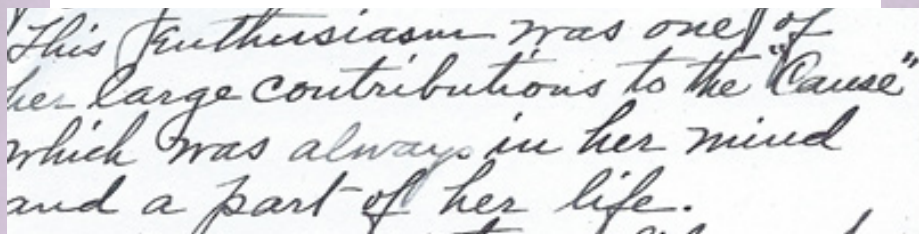 This Enthusiasm was one of
her large contributions to the "Cause"
which was always in her mind
and a part of her life.